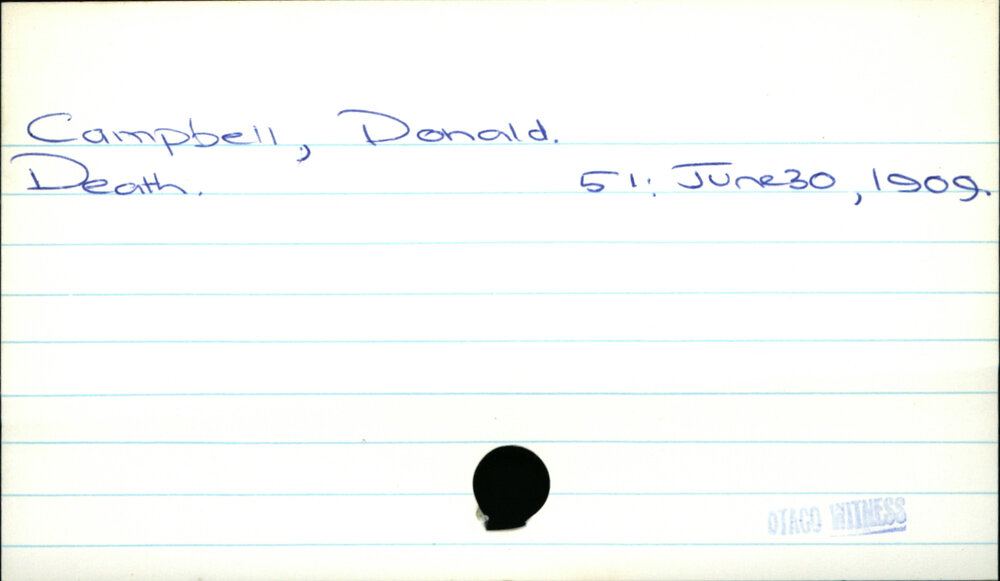 Campbell, Donald.
Death. 51: June 30, 1909.
OTAGO WITNESS